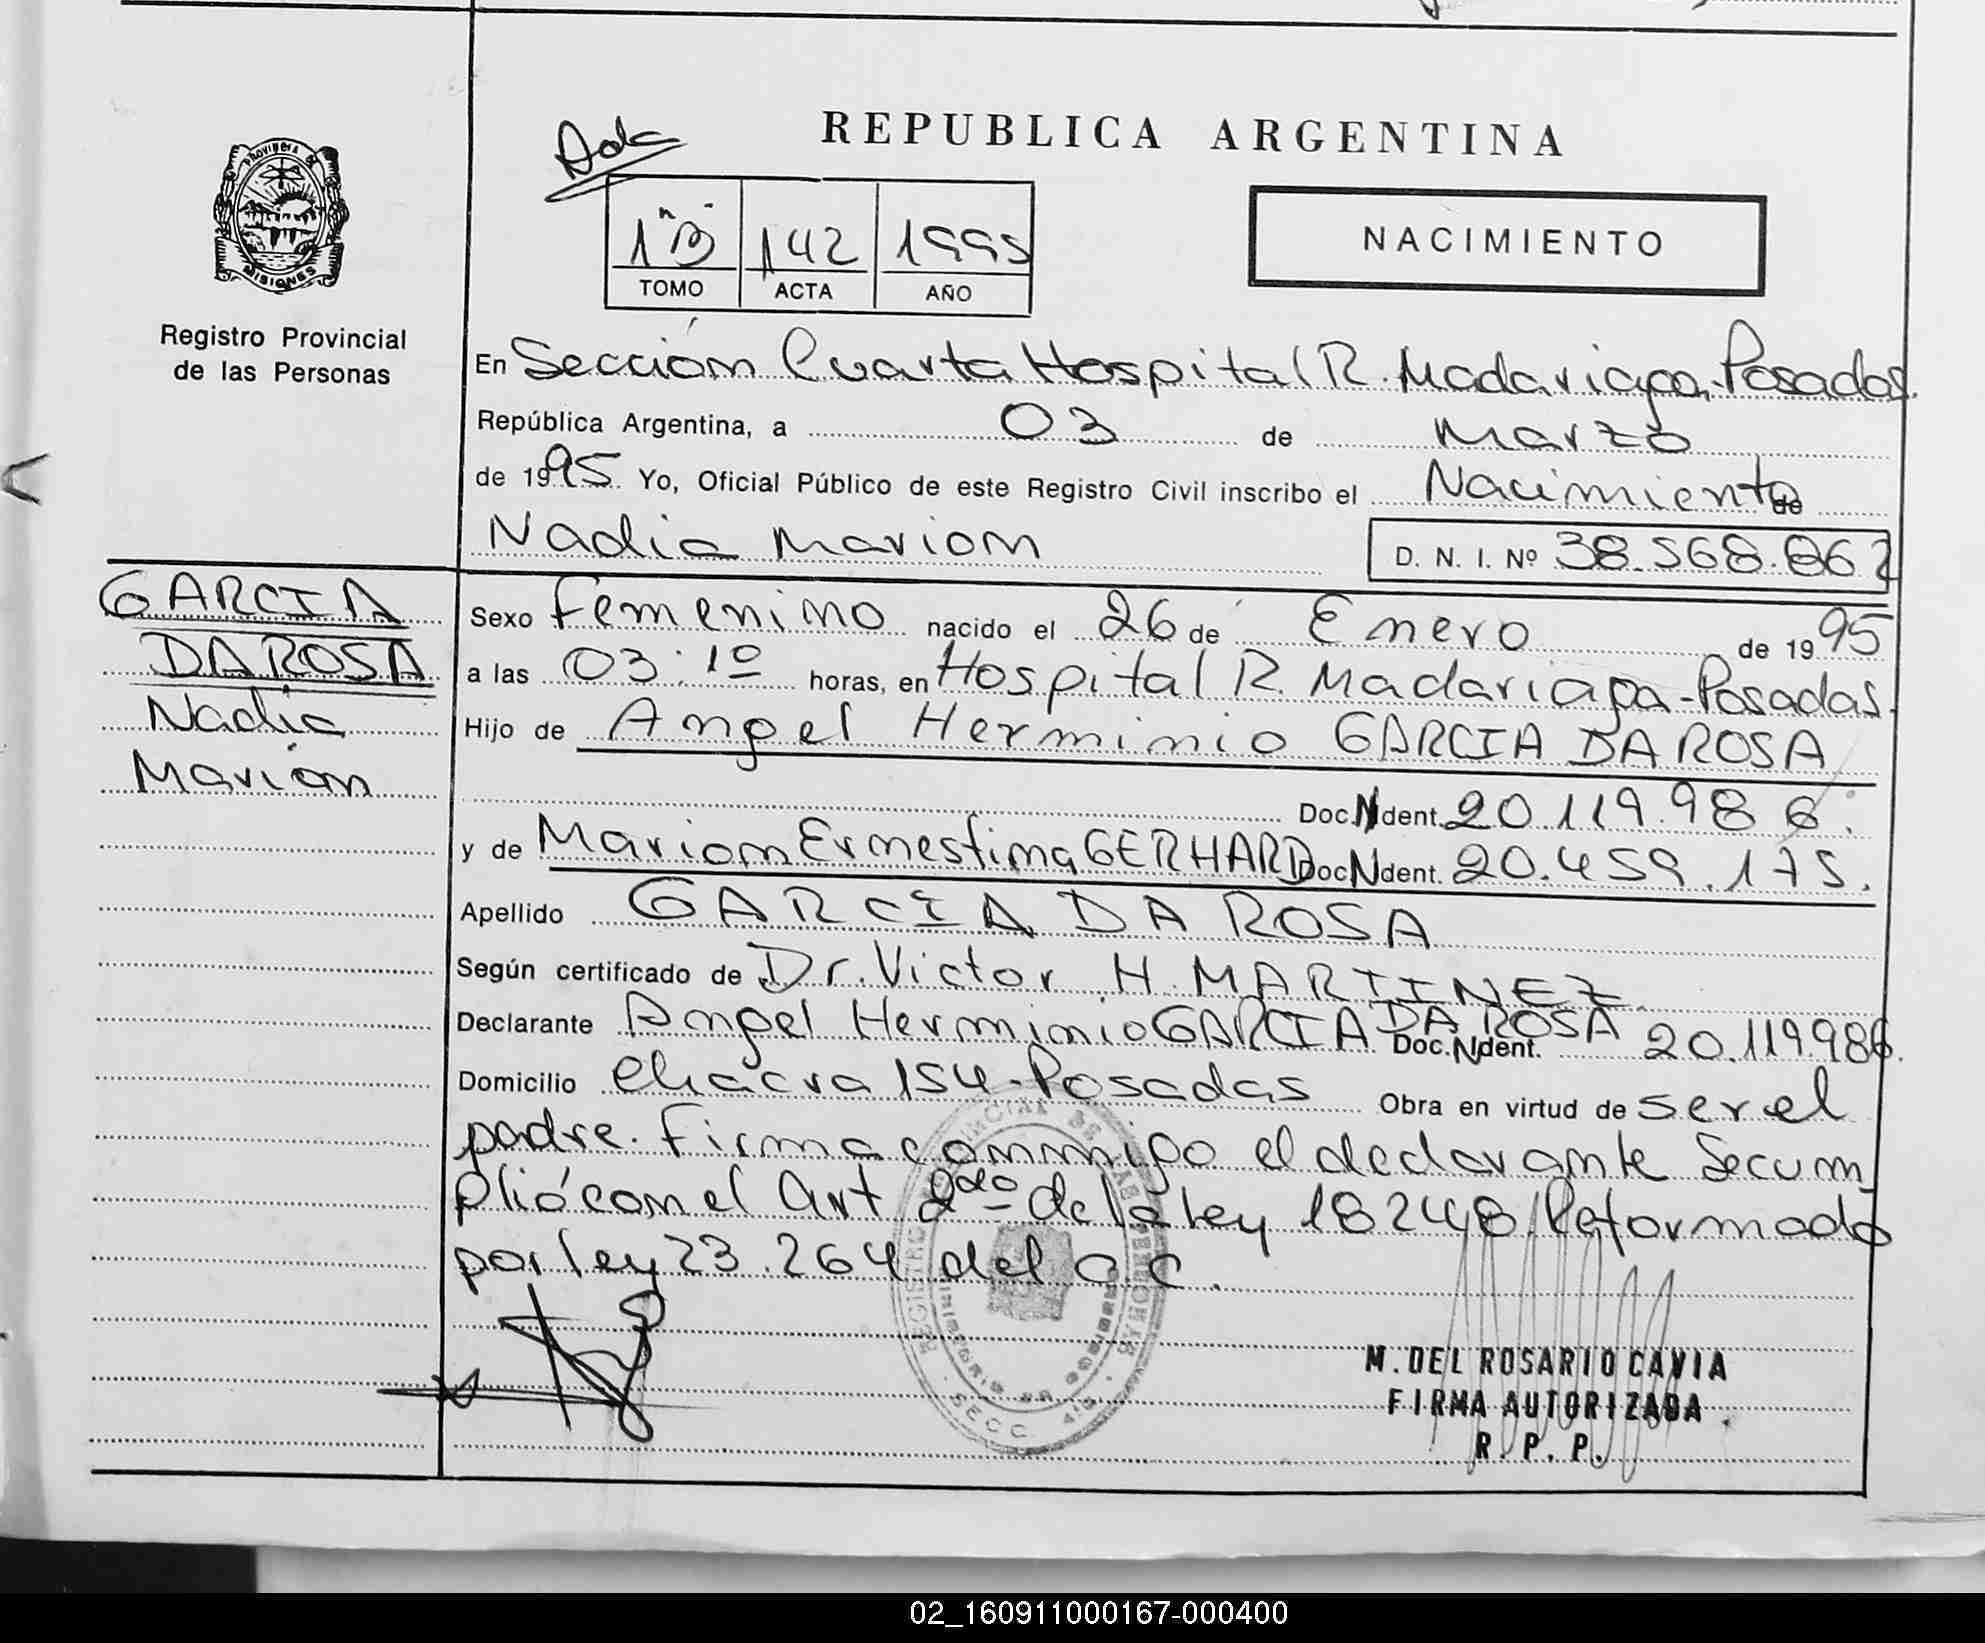 REPUBLICA ARGENTINA
PROVINCIA DE
MISIONES
1 "B" 142 1995
TOMO ACTA AÑO
NACIMIENTO
Registro Provincial
de las Personas
En Sección Cuarta Hospital R. Madariaga-Posadas.
República Argentina, a 03 de Marzo
de 1995. Yo, Oficial Público de este Registro Civil inscribo el Nacimiento de
Nadia Marion D. N. I. Nº 38.568.862
GARCIA
DA ROSA
Nadia
Marion
Sexo Femenino nacido el 26 de Enero de 1995
a las 03:10 horas, en Hospital R. Madariaga-Posadas.
Hijo de Angel Herminio GARCIA DA ROSA
Doc. N Ident. 20.119.986.
y de Marion Ernestina GERHARD Doc N Ident. 20.459.175.
Apellido GARCIA DA ROSA
Según certificado de Dr. Victor H. MARTINEZ
Declarante Angel Herminio GARCIA DA ROSA Doc. N Ident. 20.119.986.
Domicilio chacra 154-Posadas Obra en virtud de ser el
padre. Firma conmigo el declarante Secum
plió con el Art 2do de la Ley 18248 Reformado
por ley 23.264 del C.C.
SECC 4ta
M. DEL ROSARIO CAVIA
FIRMA AUTORIZADA
R. P. P.
02_160911000167-000400